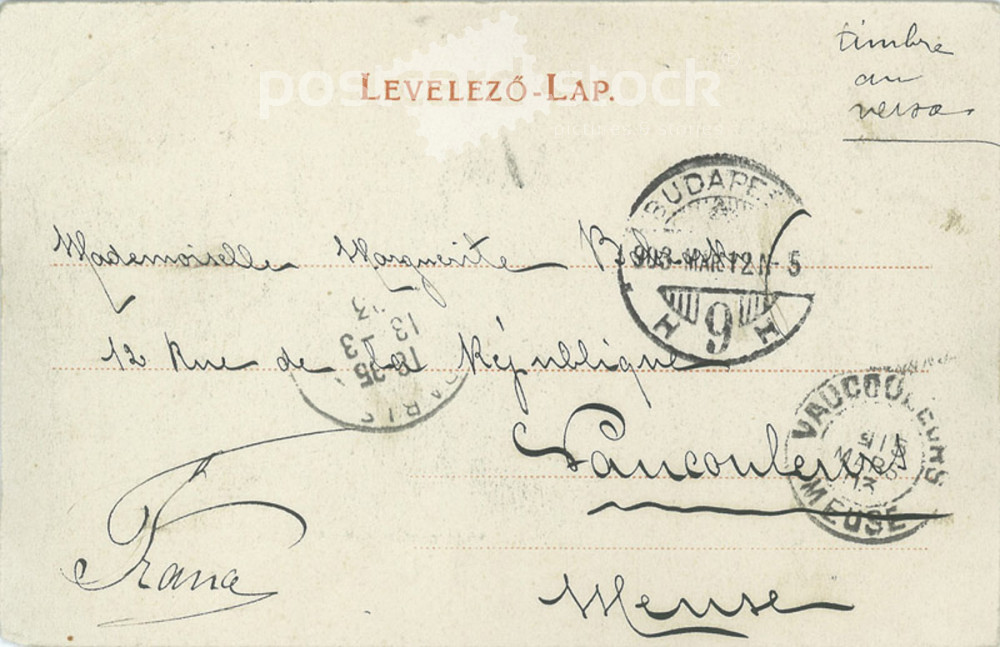 timbre
au
verso
postcardstock
LEVELEZŐ-LAP.
pictures & stories
BUDAPE
903 MAR 12 N 5
9
H H
Mademoiselle Marguerite
12 Rue de la République
13 3
18 35
PARIS
Vaucouleurs
VAUCOULEURS
MEUSE
France
Meuse